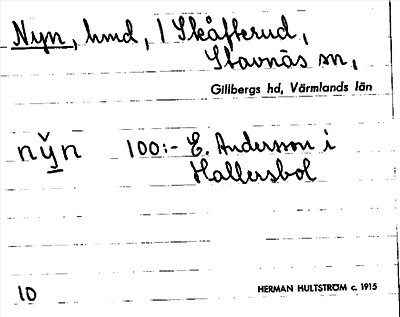 Nyn, hmd, 1 Skåfterud,
Stavnäs sn,
Gillbergs hd, Värmlands län
ny̌n 100:- E. Andersson i
Hallersbol
10 HERMAN HULTSTRÖM c. 1915